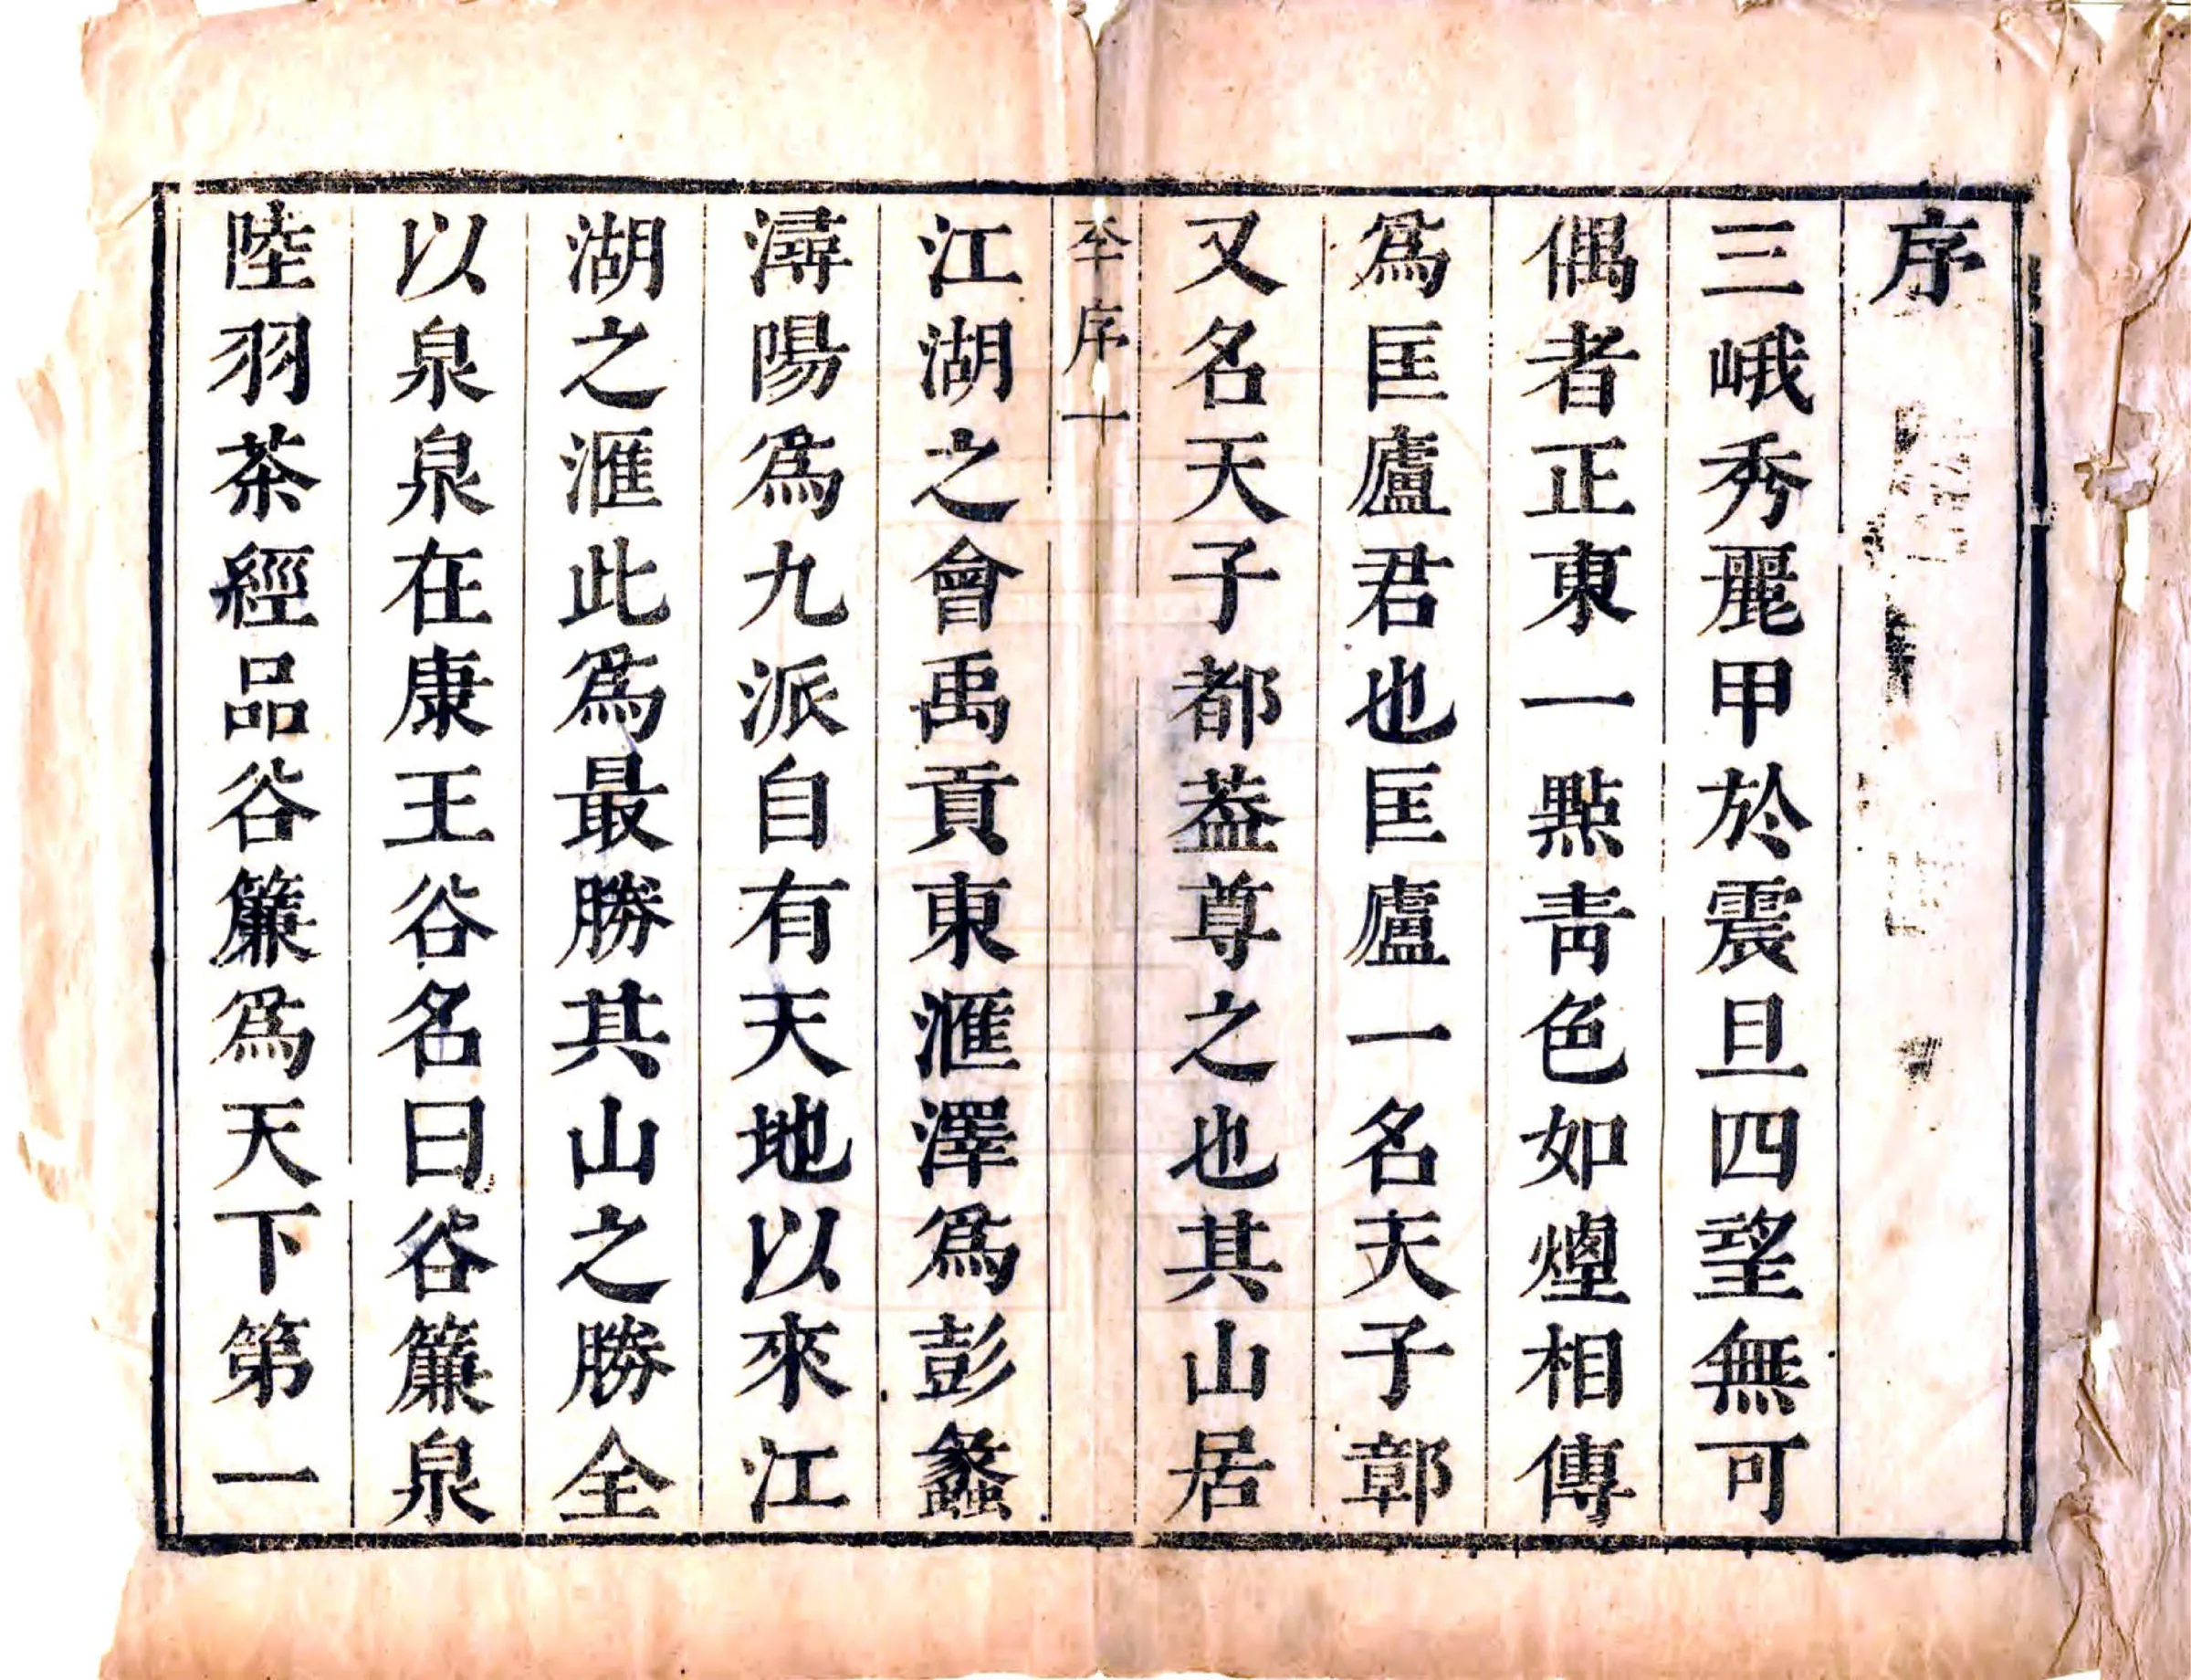 序
三峨秀麗甲於震旦四望無可
偶者正東一點青色如煙相傳
爲匡廬君也匡廬一名天子鄣
又名天子都葢尊之也其山居
序一
江湖之會禹貢東滙澤爲彭蠡
潯陽爲九派自有天地以來江
湖之滙此爲最勝其山之勝全
以泉泉在康王谷名曰谷簾泉
陸羽茶經品谷簾爲天下第一